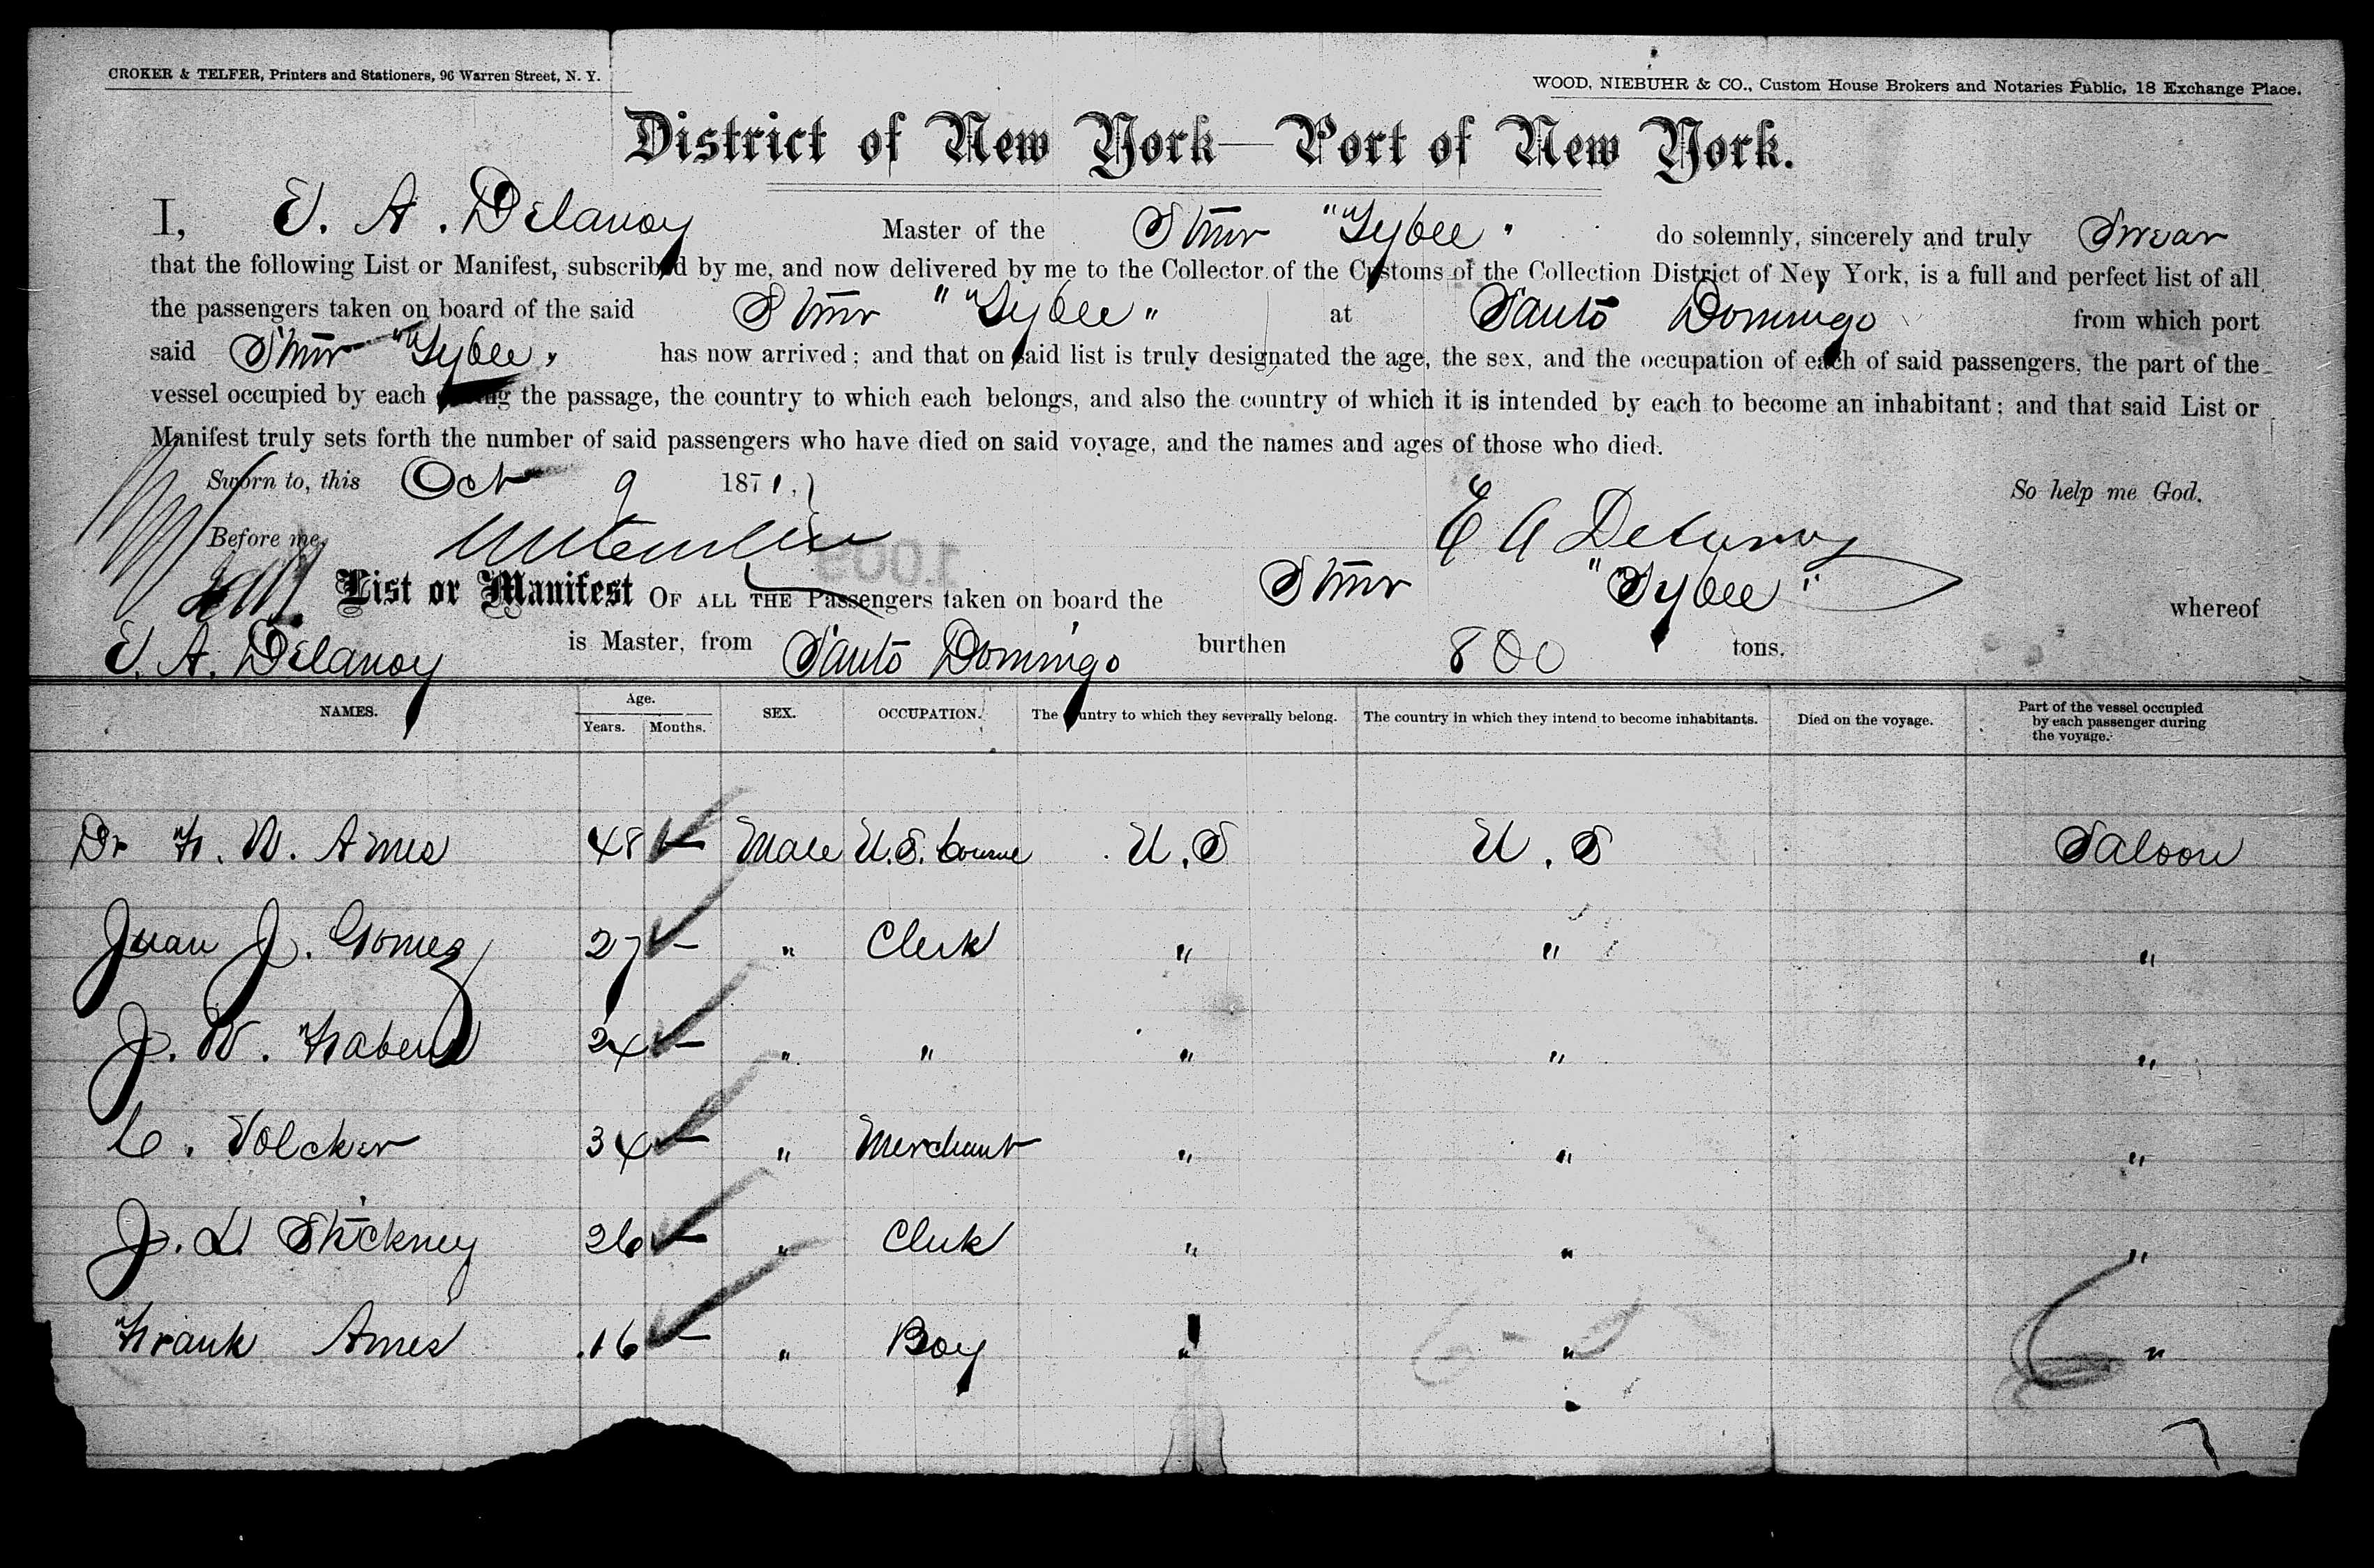 CROKER & TELFER, Printers and Stationers, 96 Warren Street, N. Y.
WOOD, NIEBUHR & CO., Custom House Brokers and Notaries Public, 18 Exchange Place.
District of New York—Port of New York.
I, E. A. Delanoy Master of the Stmr "Tybee" do solemnly, sincerely and truly Swear
that the following List or Manifest, subscribed by me, and now delivered by me to the Collector of the Customs of the Collection District of New York, is a full and perfect list of all
the passengers taken on board of the said Stmr "Tybee" at Santo Domingo from which port
said Stmr "Tybee" has now arrived; and that on said list is truly designated the age, the sex, and the occupation of each of said passengers, the part of the
vessel occupied by each during the passage, the country to which each belongs, and also the country of which it is intended by each to become an inhabitant; and that said List or
Manifest truly sets forth the number of said passengers who have died on said voyage, and the names and ages of those who died.
Sworn to, this Oct 9 1871, So help me God.
Before me, E A Delanoy
List or Manifest OF ALL THE Passengers taken on board the Stmr "Tybee" whereof
E. A. Delanoy is Master, from Santo Domingo burthen 800 tons.
NAMES. Age. Years. Months. SEX. OCCUPATION. The country to which they severally belong. The country in which they intend to become inhabitants. Died on the voyage. Part of the vessel occupied by each passenger during the voyage.
Dr F. W. Ames 48 – Male U.S. U.S U.S Saloon
Juan J. Gomez 27 – " Clerk " " "
J. W. 24 – " " " " "
C. Volcker 34 – " Merchant " " "
J. L. Stickney 26 – " Clerk " " "
Frank Ames 16 – " Boy " " "